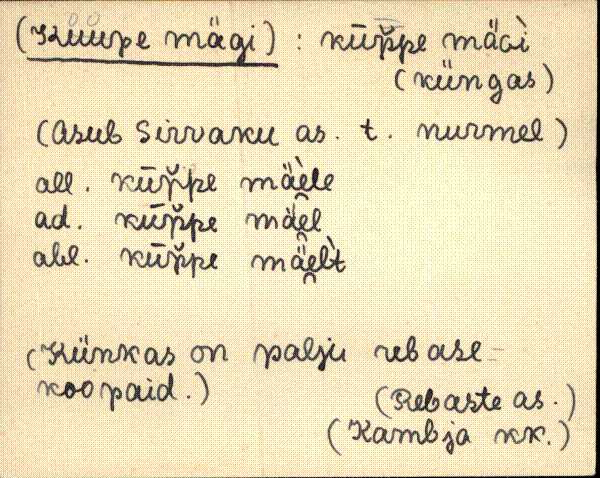 (Küüpe mägi) : kūp̆pe mäǵi
(küngas)
(Asub Sirvaku as. t. nurmel)
all. kūp̆pe mäele
ad. kūp̆pe mäel
abl. kūp̆pe mäelt
(Künkas on palju rebase-
koopaid.)
(Rebaste as.)
(Kambja kk.)